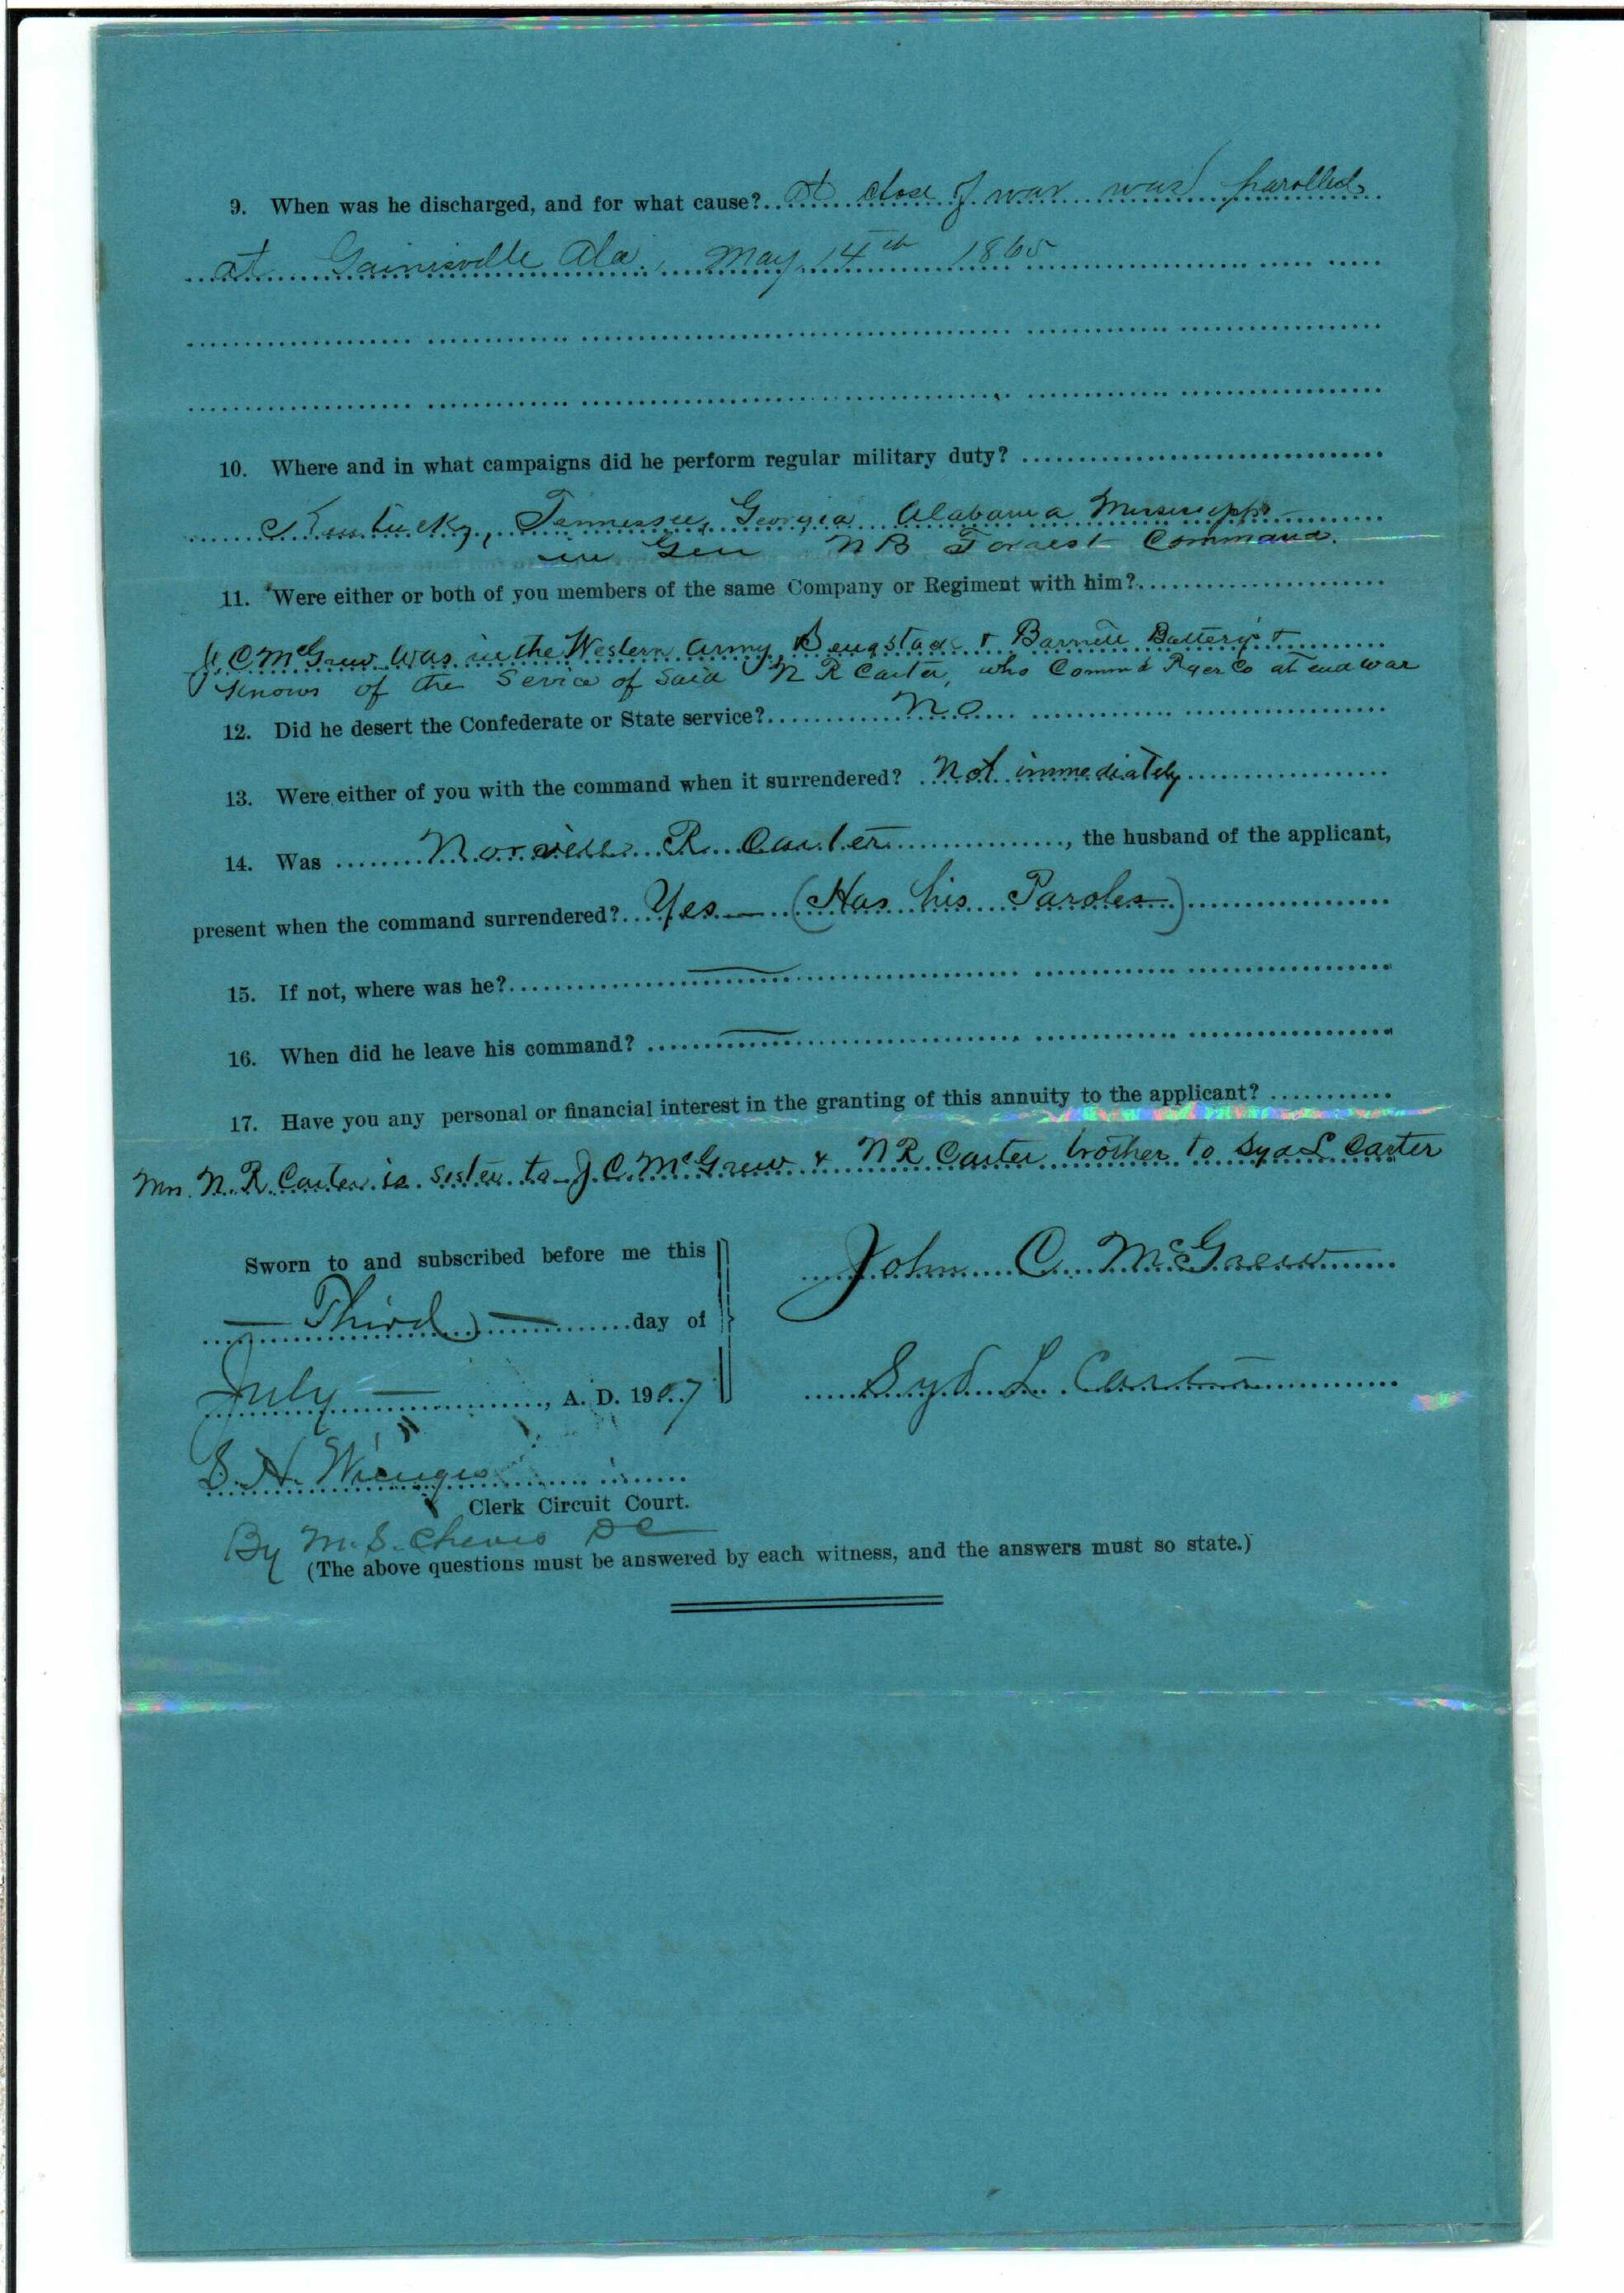 9. When was he discharged, and for what cause? At close of war was parolled
at Gainisville Ala, May 14th 1865
10. Where and in what campaigns did he perform regular military duty?
Kentucky, Tennessee, Georgia Alabama Mississippi
in Gen N B Forrest Command.
11. Were either or both of you members of the same Company or Regiment with him?
J. C McGrew was in the Western Army, & Barrett Battery &
Knows of the Service of Said N R Carter, who Commd Co at end war
12. Did he desert the Confederate or State service? No
13. Were either of you with the command when it surrendered? Not immediately
14. Was Norvell R. Carter, the husband of the applicant,
present when the command surrendered? Yes — (Has his Paroles)
15. If not, where was he? —
16. When did he leave his command? —
17. Have you any personal or financial interest in the granting of this annuity to the applicant?
Mrs. N. R. Carter is sister to J. C. McGrew & N R Carter brother to Syd L Carter
Sworn to and subscribed before me this
John C. McGrew
— Third — day of
Syd L. Carter
July —, A. D. 1907
S. H.
Clerk Circuit Court.
By M. S. Cheves DC
(The above questions must be answered by each witness, and the answers must so state.)